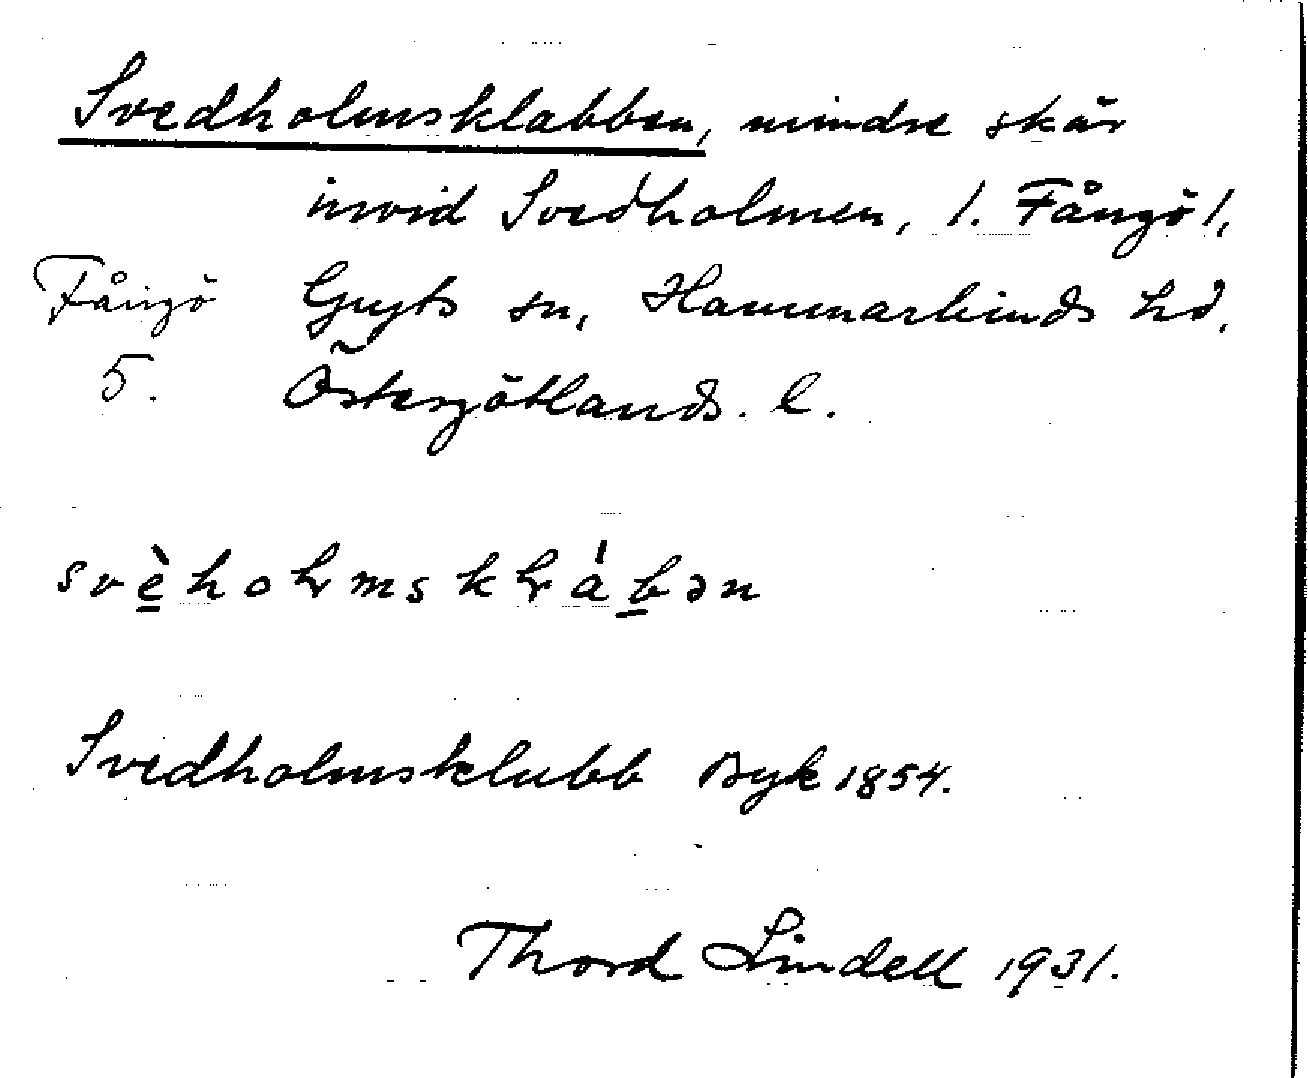 Svedholmsklabben, mindre skär
invid Svedholmen, /. Fångö/,
Fångö Gryts sn, Hammarkinds hd,
5. Östergötlands. l.
svèhoɽmskɽábən
Svedholmsklubb Byk 1854.
Thord Lindell 1931.